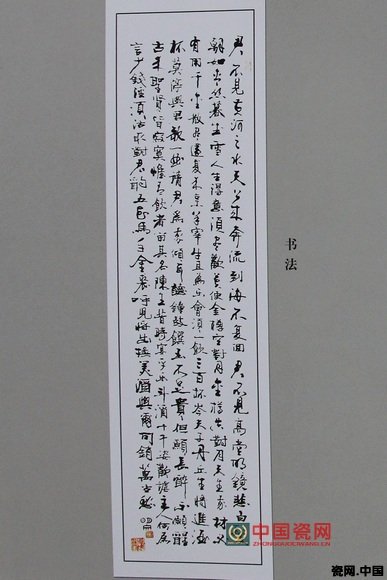 君不見黃河之水天上來奔流到海不復回君不見高堂明鏡悲白
朝如青丝暮生雪人生得意須盡歡莫使金樽空對月
有用千金散盡還復來烹羊宰牛且為樂會須一飲三百杯岑夫子丹丘生將進酒
杯莫停與君歌一曲請君為我傾耳聽鐘鼓饌玉不足貴但願長醉不願醒
古來聖賢皆寂寞惟有飲者留其名陳王昔時宴平樂斗酒十千恣歡謔主人何為
言少錢徑須沽取對君酌五花馬千金裘呼兒將出換美酒與爾同銷萬古愁
书法
中国瓷网
瓷网.中国